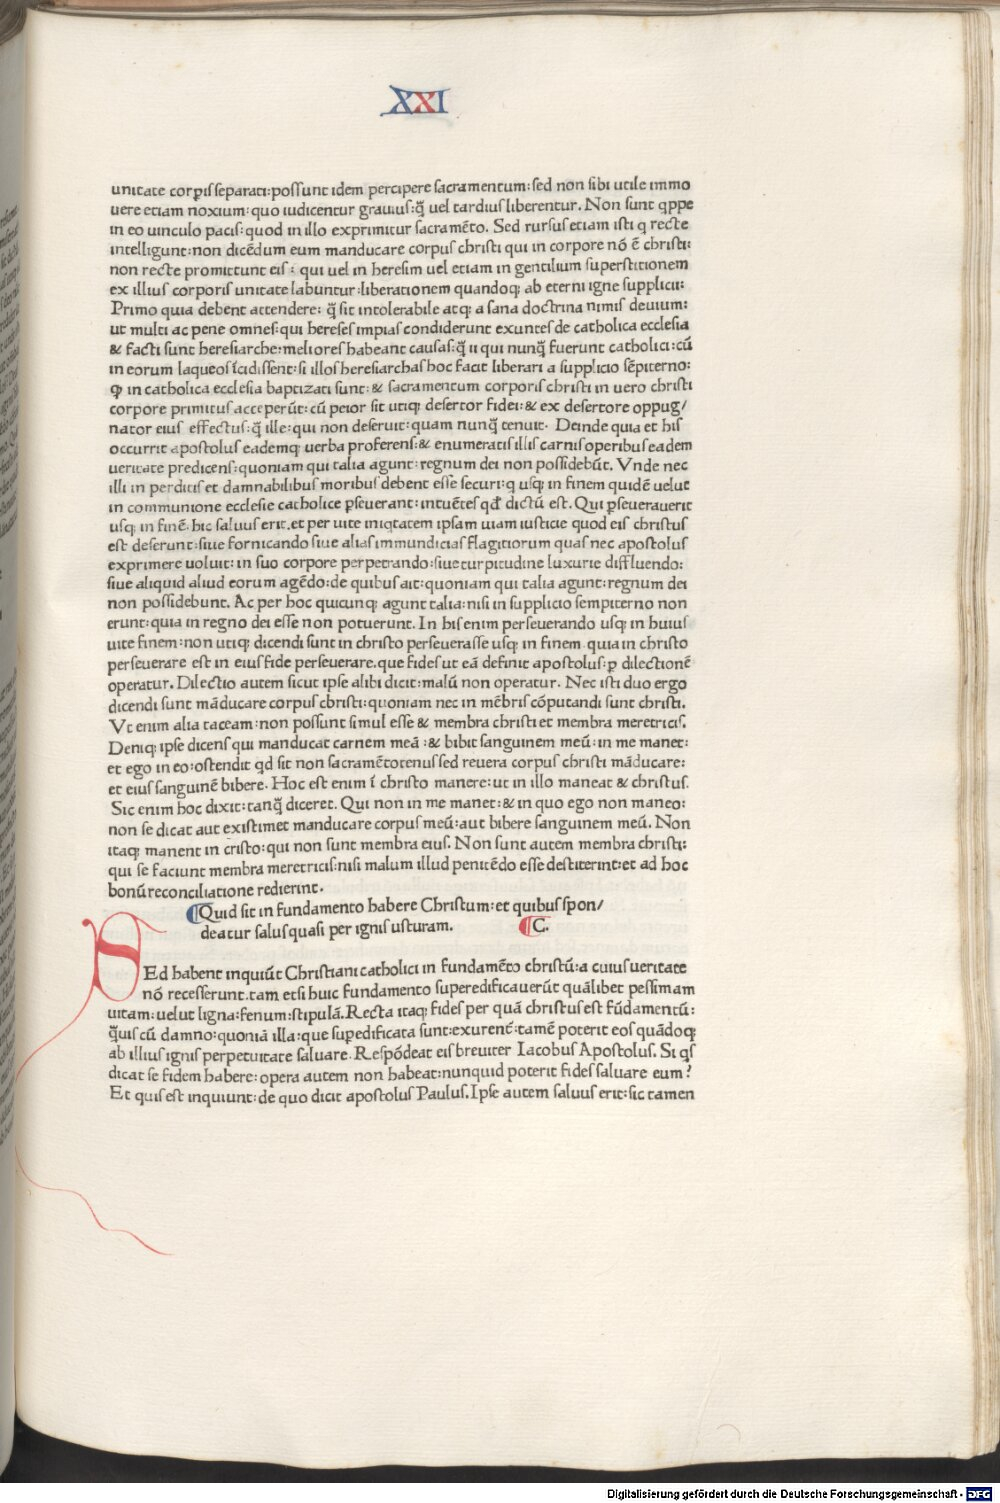 XXI
unitate corpis separati: possunt idem percipere sacramentum: sed non sibi utile immo
uere etiam noxium: quo iudicentur grauius: q̃ uel tardius liberentur. Non sunt qppe
in eo uinculo pacis: quod in illo exprimitur sacramẽto. Sed rursus etiam isti q recte
intelligunt: non dicẽdum eum manducare corpus christi qui in corpore nõ ẽ christi:
non recte promittunt eis: qui uel in heresim uel etiam in gentilium superstitionem
ex illius corporis unitate labuntur: liberationem quandoq; ab eterni igne supplicii:
Primo quia debent attendere: q̃ sit intolerabile atq; a sana doctrina nimis deuium:
ut multi ac pene omnes: qui hereses impias condiderunt exuntes de catholica ecclesia
& facti sunt heresiarche: meliores habeant causas: q̃ ii qui nunq̃ fuerunt catholici: cũ
in eorum laqueos ĩcidissent: si illos heresiarchas hoc facit liberari a supplicio sẽpiterno:
ꝙ in catholica ecclesia baptizati sunt: & sacramentum corporis christi in uero christi
corpore primitus acceperũt: cũ peior sit utiq; desertor fidei: & ex desertore oppug/
nator eius effectus: q̃ ille: qui non deseruit: quam nunq̃ tenuit. Deinde quia et his
occurrit apostolus eademq; uerba proferens: & enumeratis illis carnis operibus eadem
ueritate predicens: quoniam qui talia agunt: regnum dei non possidebũt. Vnde nec
illi in perditis et damnabilibus moribus debent esse securi: q usq; in finem quidẽ uelut
in communione ecclesie catholice ꝑseuerant: intuẽtes qđ dictũ est. Qui ꝑseuerauerit
usq; in finẽ. hic saluus erit. et per uite iniqtatem ipsam uiam iusticie quod eis christus
est deserunt: siue fornicando siue alias immundicias flagitiorum quas nec apostolus
exprimere uoluit: in suo corpore perpetrando: siue turpitudine luxurie diffluendo:
siue aliquid aliud eorum agẽdo: de quibus ait: quoniam qui talia agunt: regnum dei
non possidebunt. Ac per hoc quicunq; agunt talia: nisi in supplicio sempiterno non
erunt: quia in regno dei esse non potuerunt. In his enim perseuerando usq; in huius
uite finem: non utiq; dicendi sunt in christo perseuerasse usq; in finem. quia in christo
perseuerare est in eius fide perseuerare. que fides ut eã definit apostolus: ꝑ dilectionẽ
operatur. Dilectio autem sicut ipse alibi dicit: malũ non operatur. Nec isti duo ergo
dicendi sunt mãducare corpus christi: quoniam nec in mẽbris cõputandi sunt christi.
Vt enim alia taceam: non possunt simul esse & membra christi et membra meretricis.
Deniq; ipse dicens qui manducat carnem meã: & bibit sanguinem meũ: in me manet:
et ego in eo: ostendit qd sit non sacramẽtotenus sed reuera corpus christi mãducare:
et eius sanguinẽ bibere. Hoc est enim ĩ christo manere: ut in illo maneat & christus.
Sic enim hoc dixit: tanq̃ diceret. Qui non in me manet: & in quo ego non maneo:
non se dicat aut existimet manducare corpus meũ: aut bibere sanguinem meũ. Non
itaq; manent in cristo: qui non sunt membra eius. Non sunt autem membra christi:
qui se faciunt membra meretricis: nisi malum illud penitẽdo esse destiterint: et ad hoc
bonũ reconciliatione redierint.
¶Quid sit in fundamento habere Christum: et quibus spon/
deatur salus quasi per ignis usturam. ¶C.
SEd habent inquiũt Christiani catholici in fundamẽto christũ: a cuius ueritate
nõ recesserunt. tam etsi huic fundamento superedificauerũt quãlibet pessimam
uitam: uelut ligna: fenum: stipulã. Recta itaq; fides per quã christus est fũdamentũ:
q̃uis cũ damno: quoniã illa: que suꝑedificata sunt: exurent̃: tamẽ poterit eos quãdoq;
ab illius ignis perpetuitate saluare. Respõdeat eis breuiter Iacobus Apostolus. Si qs
dicat se fidem habere: opera autem non habeat: nunquid poterit fides saluare eum?
Et quis est inquiunt: de quo dicit apostolus Paulus. Ipse autem saluus erit: sic tamen
Digitalisierung gefördert durch die Deutsche Forschungsgemeinschaft - DFG